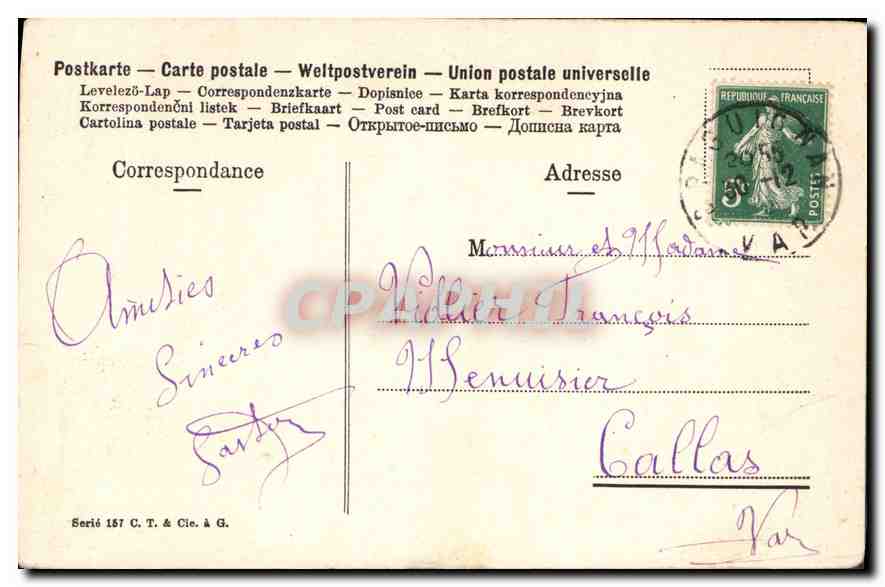 Postkarte — Carte postale — Weltpostverein — Union postale universelle
Levelező-Lap — Correspondenzkarte — Dopisnice — Karta korrespondencyjna
Korrespondenční listek — Briefkaart — Post card — Brefkort — Brevkort
Cartolina postale — Tarjeta postal — Открытое-письмо — Дописна карта
Correspondance
Adresse
REPUBLIQUE FRANÇAISE
POSTES
DRAGUIGNAN
VAR
Monsieur et Madame
François
Menuisier
Callas
Var
Amitiés
Sincères
Gaston
CPARHU
Serié 157 C. T. & Cie. à G.